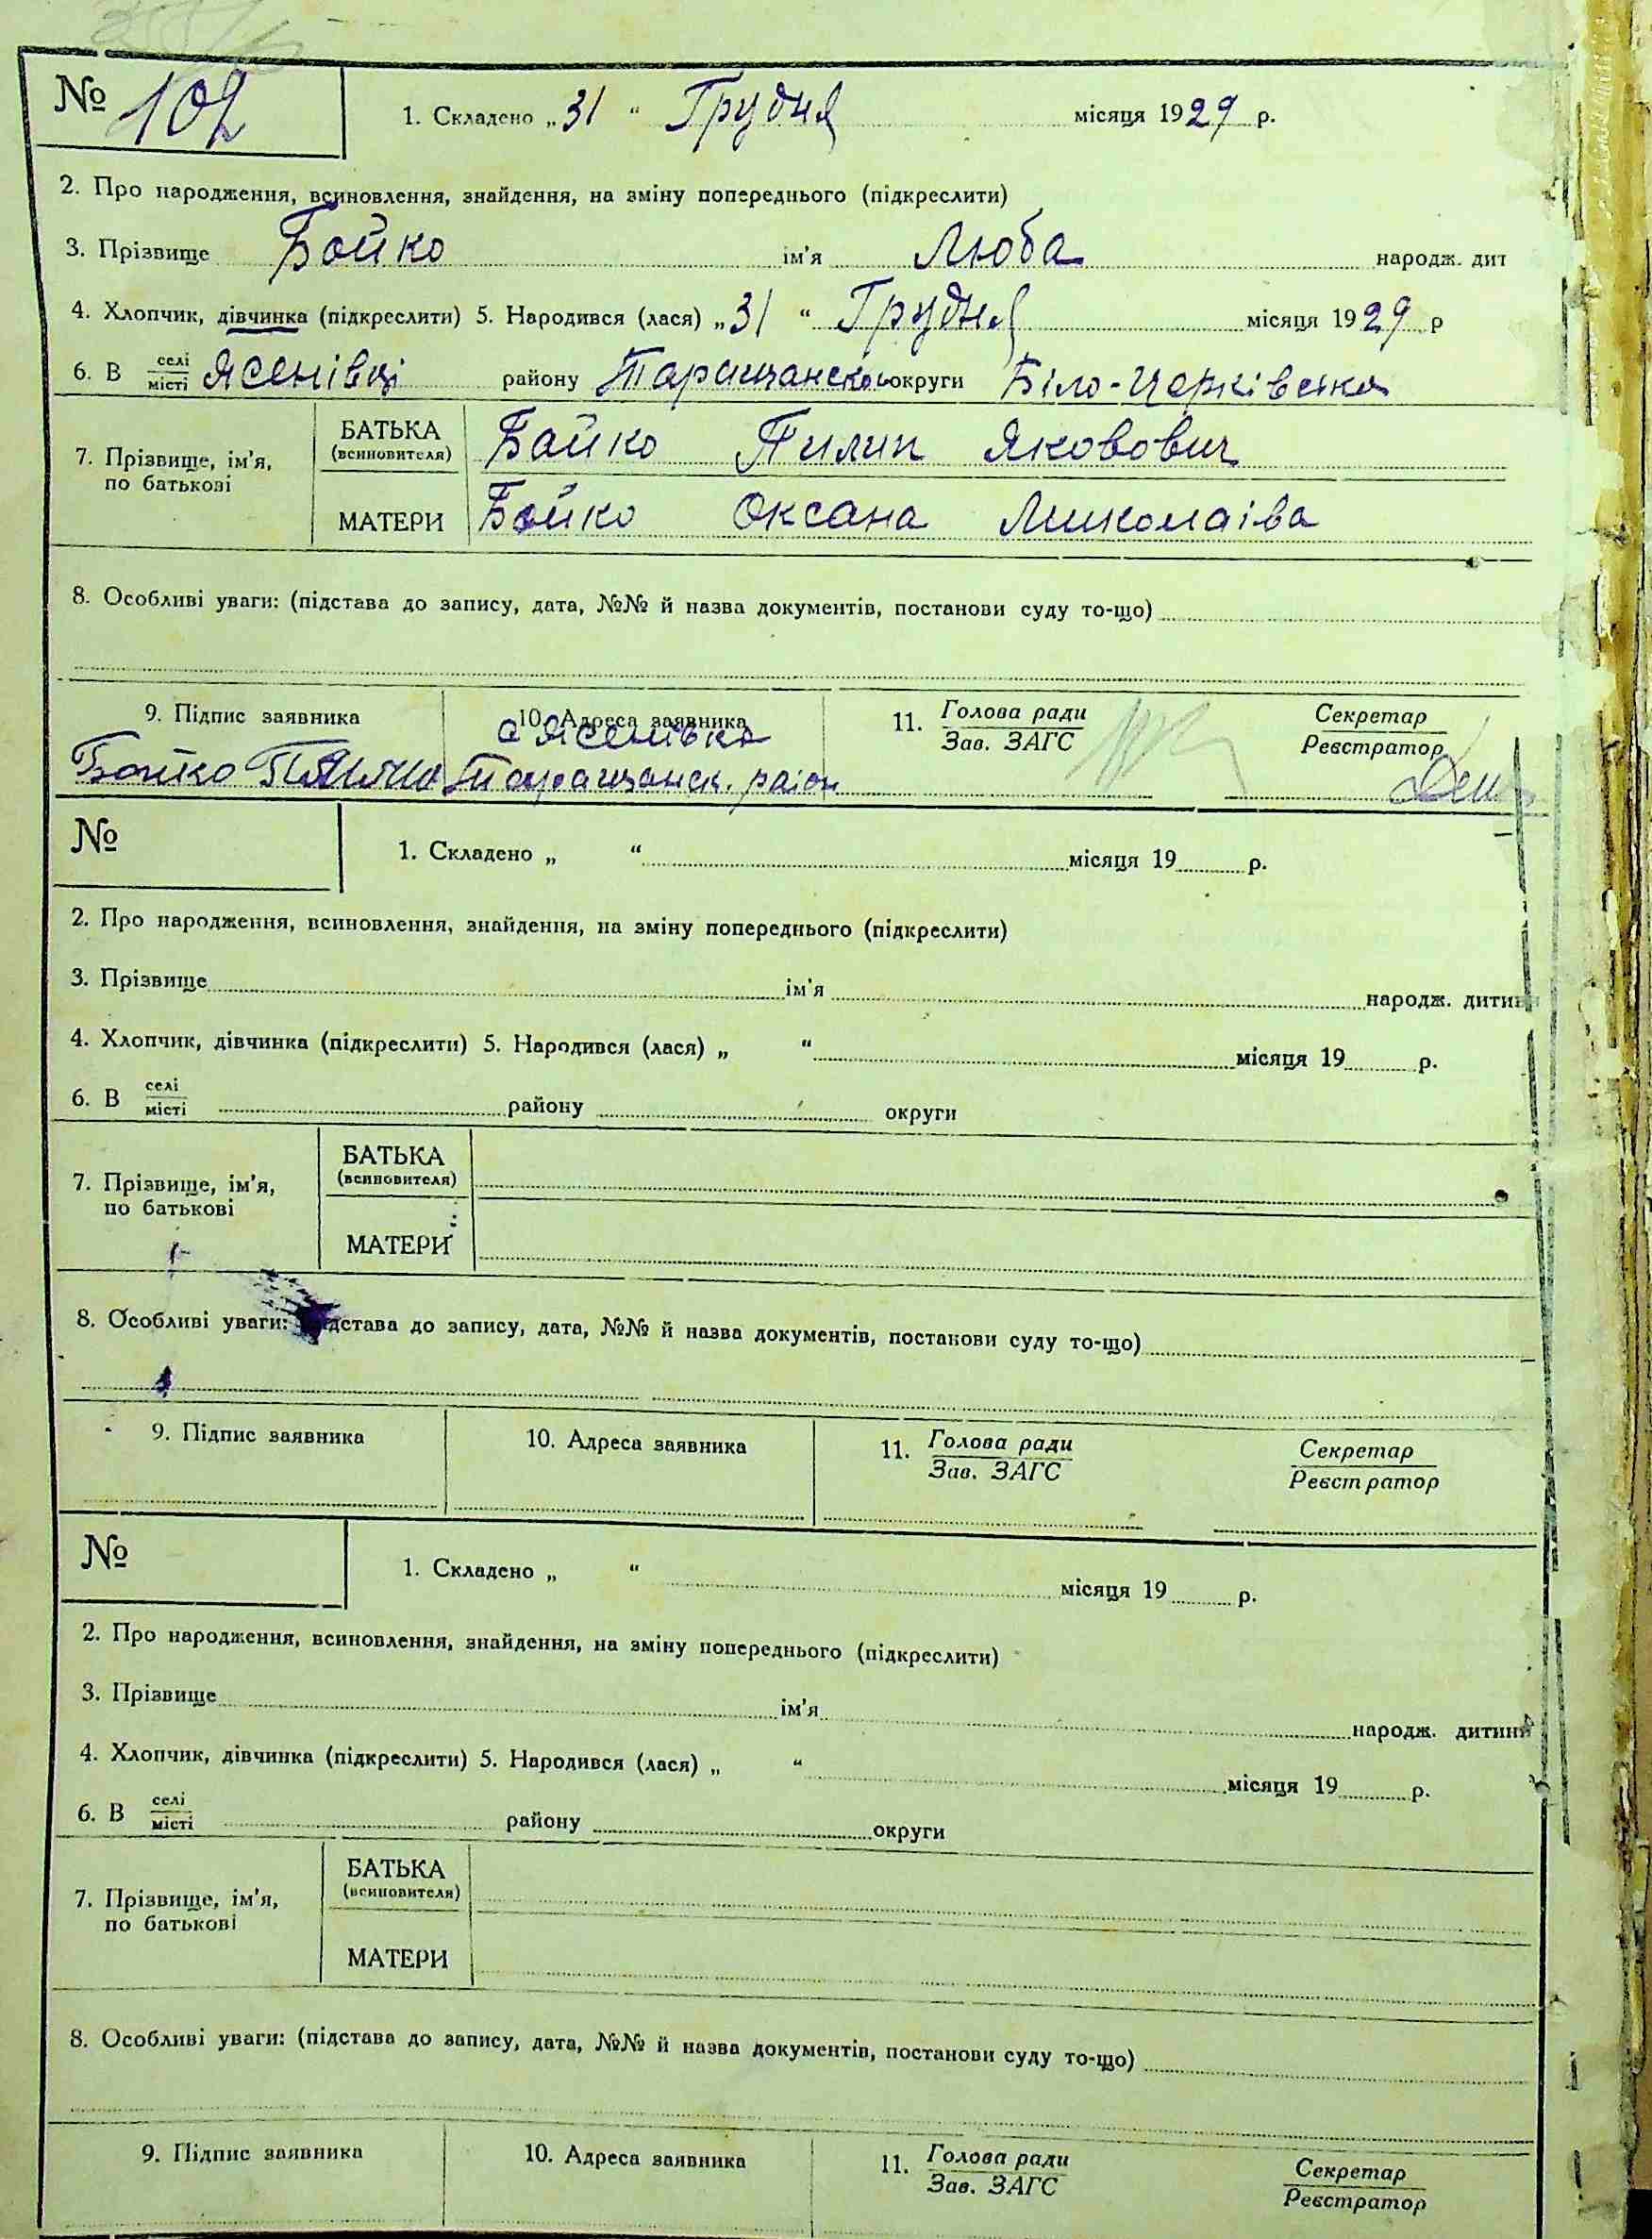 № 102
1. Складено „31“ Грудня місяця 1929 р.
2. Про народження, всиновлення, знайдення, на зміну попереднього (підкреслити)
3. Прізвище Бойко ім'я Люба народж. дит
4. Хлопчик, дівчинка (підкреслити) 5. Народився (лася) „31“ Грудня місяця 1929 р
6. В селі місті Ясенівці району Таращансько округи Біло-Церківська
7. Прізвище, ім'я, по батькові
БАТЬКА (всиновителя) Бойко Пилип Якович
МАТЕРИ Бойко Оксана Миколаіва
8. Особливі уваги: (підстава до запису, дата, №№ й назва документів, постанови суду то-що)
9. Підпис заявника
10. Адреса заявника
11. Голова ради Зав. ЗАГС
Секретар Реєстратор
Бойко
с Ясенівка
Таращанск. район
№
1. Складено „ “ місяця 19 р.
2. Про народження, всиновлення, знайдення, на зміну попереднього (підкреслити)
3. Прізвище ім'я народж. дитин
4. Хлопчик, дівчинка (підкреслити) 5. Народився (лася) „ “ місяця 19 р.
6. В селі місті району округи
7. Прізвище, ім'я, по батькові
БАТЬКА (всиновителя)
МАТЕРИ
8. Особливі уваги: дстава до запису, дата, №№ й назва документів, постанови суду то-що)
9. Підпис заявника
10. Адреса заявника
11. Голова ради Зав. ЗАГС
Секретар Реєстратор
№
1. Складено „ “ місяця 19 р.
2. Про народження, всиновлення, знайдення, на зміну попереднього (підкреслити)
3. Прізвище ім'я народж. дитини
4. Хлопчик, дівчинка (підкреслити) 5. Народився (лася) „ “ місяця 19 р.
6. В селі місті району округи
7. Прізвище, ім'я, по батькові
БАТЬКА (всиновителя)
МАТЕРИ
8. Особливі уваги: (підстава до запису, дата, №№ й назва документів, постанови суду то-що)
9. Підпис заявника
10. Адреса заявника
11. Голова ради Зав. ЗАГС
Секретар Реєстратор